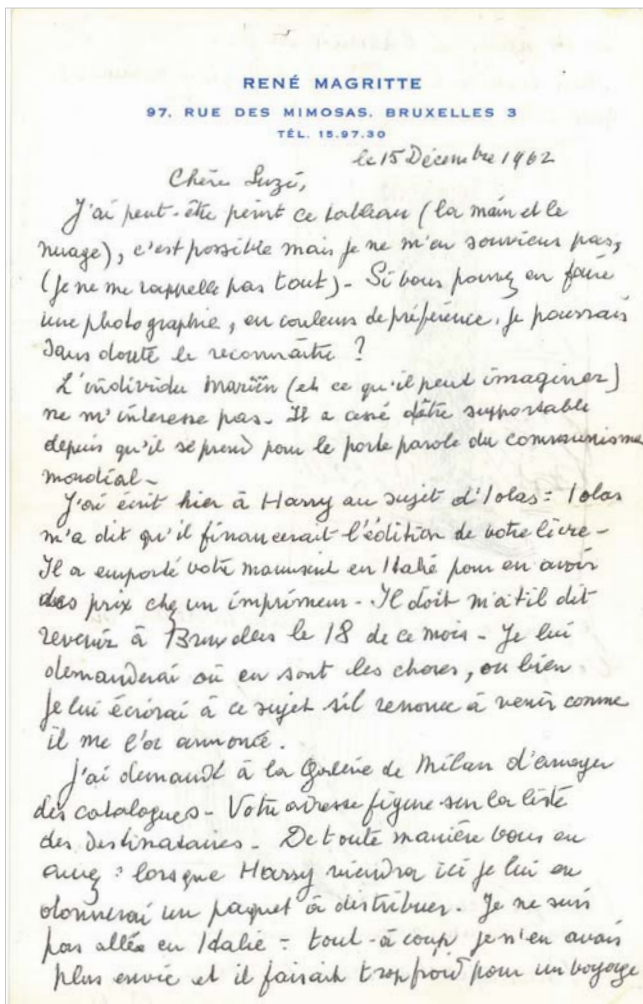 RENÉ MAGRITTE
97, RUE DES MIMOSAS, BRUXELLES 3
TÉL. 15.97.30
le 15 Décembre 1962
Chère Suzi,
J'ai peut-être peint ce tableau (la main et le
nuage), c'est possible mais je ne m'en souviens pas,
(je ne me rappelle pas tout) - Si vous pouvez en faire
une photographie, en couleurs de préférence, je pourrais
sans doute le reconnaître ?
L'individu Mariën (et ce qu'il peut imaginer)
ne m'intéresse pas. Il a cessé d'être supportable
depuis qu'il se prend pour le porte parole du communisme
mondial -
J'ai écrit hier à Harry au sujet d'Iolas = Iolas
m'a dit qu'il financerait l'édition de votre livre -
Il a emporté votre manuscrit en Italie pour en avoir
des prix chez un imprimeur - Il doit m'a til dit
revenir à Bruxelles le 18 de ce mois - Je lui
demanderai où en sont les choses, ou bien
je lui écrirai à ce sujet s'il renonce à venir comme
il me l'a annoncé.
J'ai demandé à la Galerie de Milan d'envoyer
des catalogues - Votre adresse figure sur la liste
des destinataires - De toute manière vous en
aurez : lorsque Harry viendra ici je lui en
donnerai un paquet à distribuer. Je ne suis
pas allé en Italie = tout-à coup je n'en avais
plus envie et il faisait trop froid pour un voyage